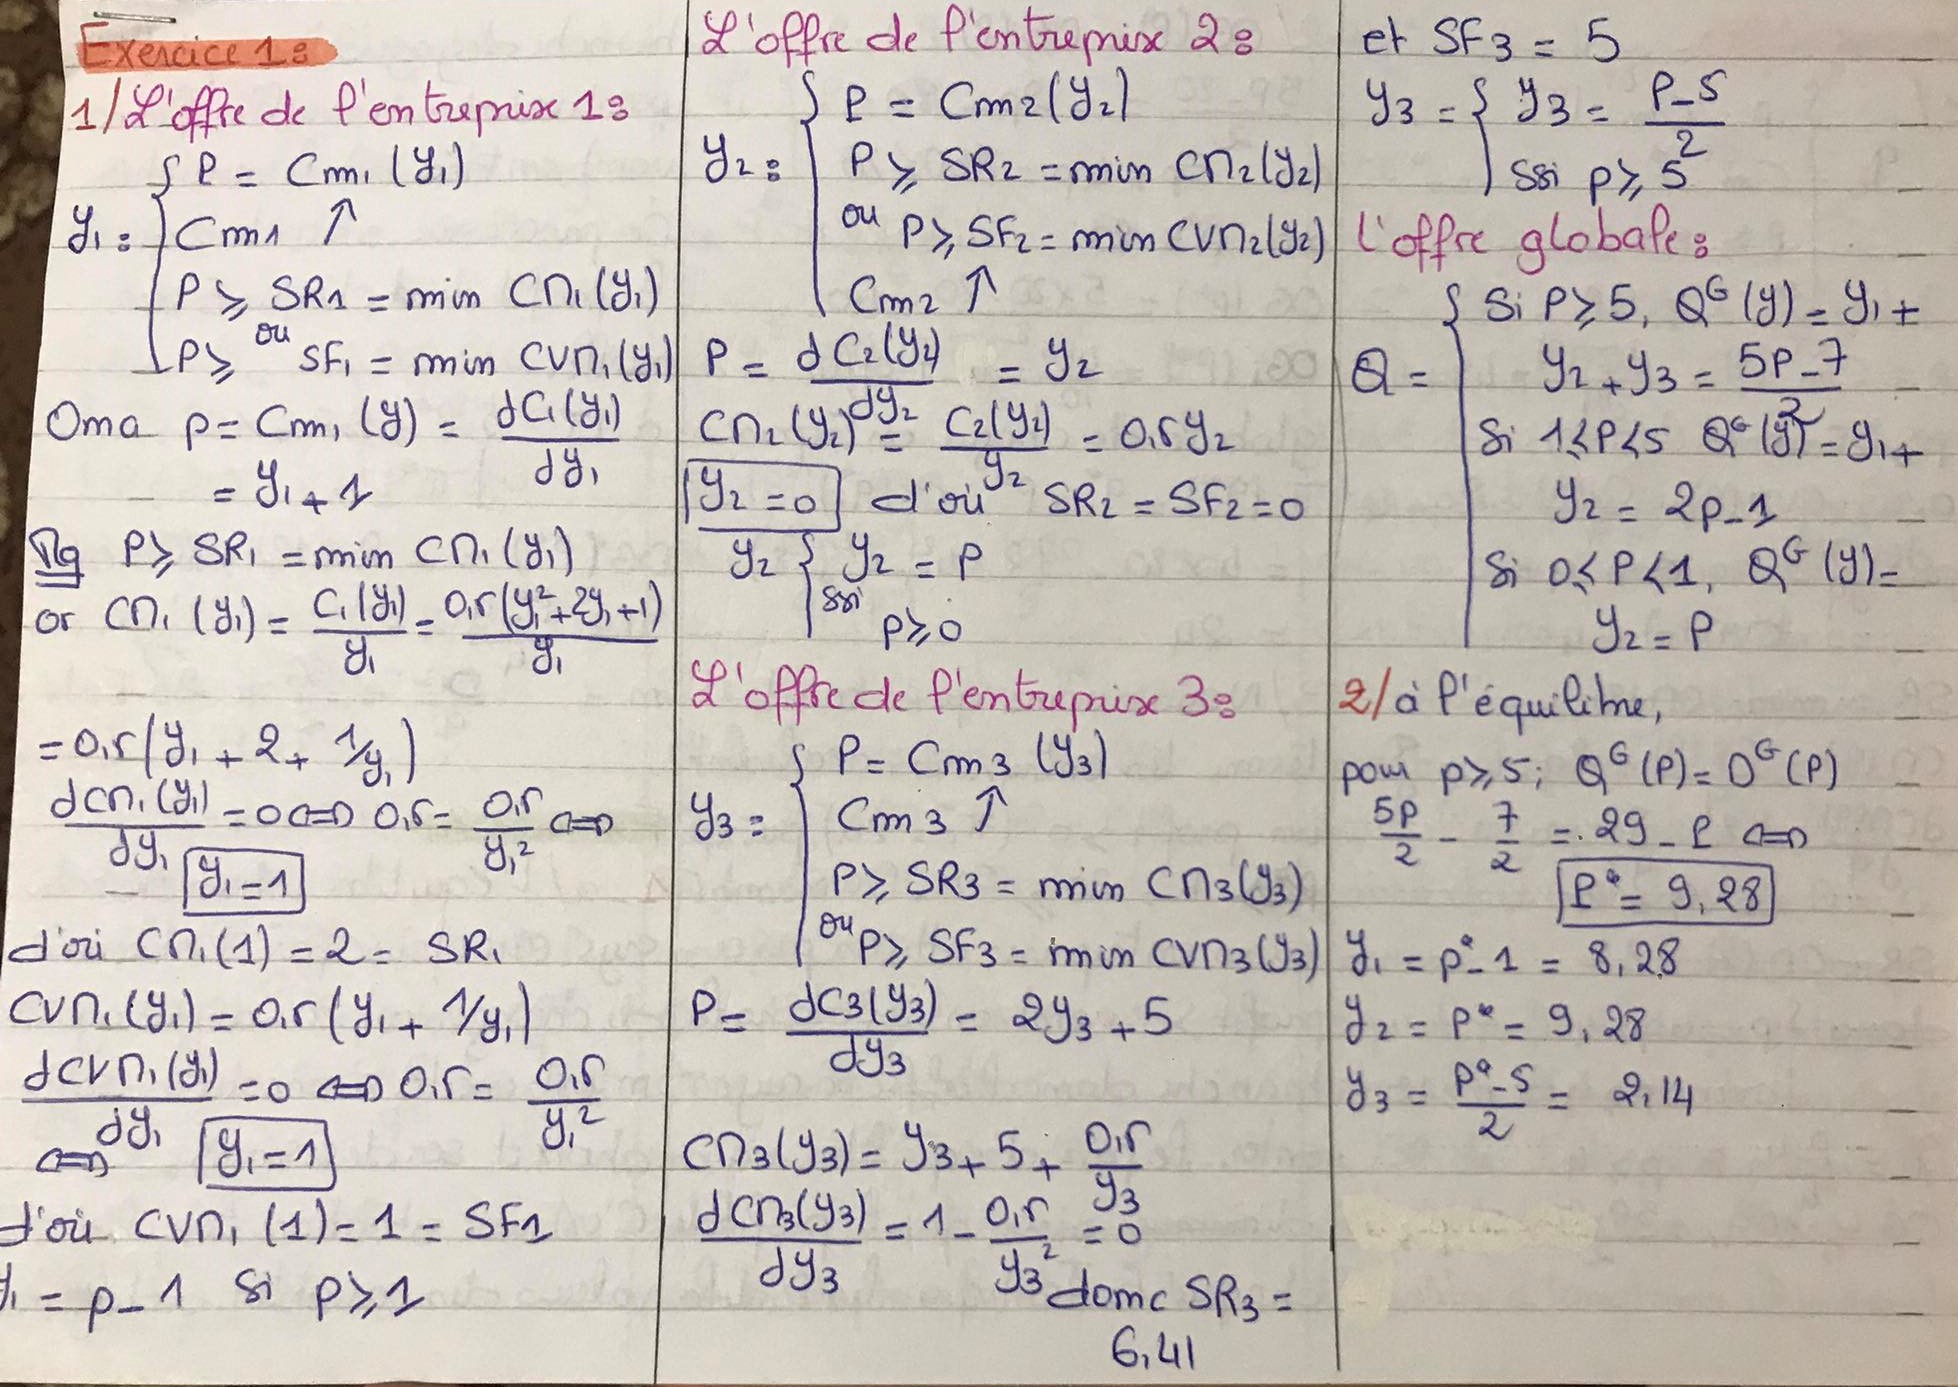 Exercice 1:
1/ L'offre de l'entreprise 1:
P = Cm1 (y1)
y1: Cm1 ↑
P ≥ SR1 = min CM1 (y1)
ou
P ≥ SF1 = min CVM1 (y1)
On a p = Cm1 (y) = dC1(y1) / dy1
= y1 + 1
Mq P ≥ SR1 = min CM1 (y1)
or CM1 (y1) = C1(y1) / y1 = 0,5(y1² + 2y1 + 1) / y1
= 0,5(y1 + 2 + 1/y1)
dCM1(y1) / dy1 = 0 ⇔ 0,5 = 0,5 / y1² ⇔
y1 = 1
d'où CM1(1) = 2 = SR1
CVM1(y1) = 0,5(y1 + 1/y1)
dCVM1(y1) / dy1 = 0 ⇔ 0,5 = 0,5 / y1²
⇔ y1 = 1
d'où CVM1 (1) = 1 = SF1
y1 = p - 1 si p ≥ 1
L'offre de l'entreprise 2:
P = Cm2(y2)
y2: P ≥ SR2 = min CM2(y2)
ou P ≥ SF2 = min CVM2(y2)
Cm2 ↑
P = dC2(y2) / dy2 = y2
CM2(y2) = C2(y2) / y2 = 0,5y2
y2 = 0 d'où SR2 = SF2 = 0
y2 { y2 = P
ssi
p ≥ 0
L'offre de l'entreprise 3:
P = Cm3 (y3)
y3: Cm3 ↑
P ≥ SR3 = min CM3(y3)
ou
P ≥ SF3 = min CVM3(y3)
P = dC3(y3) / dy3 = 2y3 + 5
CM3(y3) = y3 + 5 + 0,5 / y3
dCM3(y3) / dy3 = 1 - 0,5 / y3² = 0
donc SR3 =
6,41
et SF3 = 5
y3 = { y3 = P-5 / 2
ssi p ≥ 5
l'offre globale:
Si P ≥ 5, Q^G (y) = y1 +
Q = y2 + y3 = 5P-7 / 2
Si 1 ≤ P < 5 Q^G (y) = y1 +
y2 = 2p-1
Si 0 ≤ P < 1, Q^G (y) =
y2 = P
2/ à l'équilibre,
pour p ≥ 5; Q^G (P) = D^G (P)
5P / 2 - 7 / 2 = 29 - P ⇔
P* = 9,28
y1 = p* - 1 = 8,28
y2 = P* = 9,28
y3 = P* - 5 / 2 = 2,14